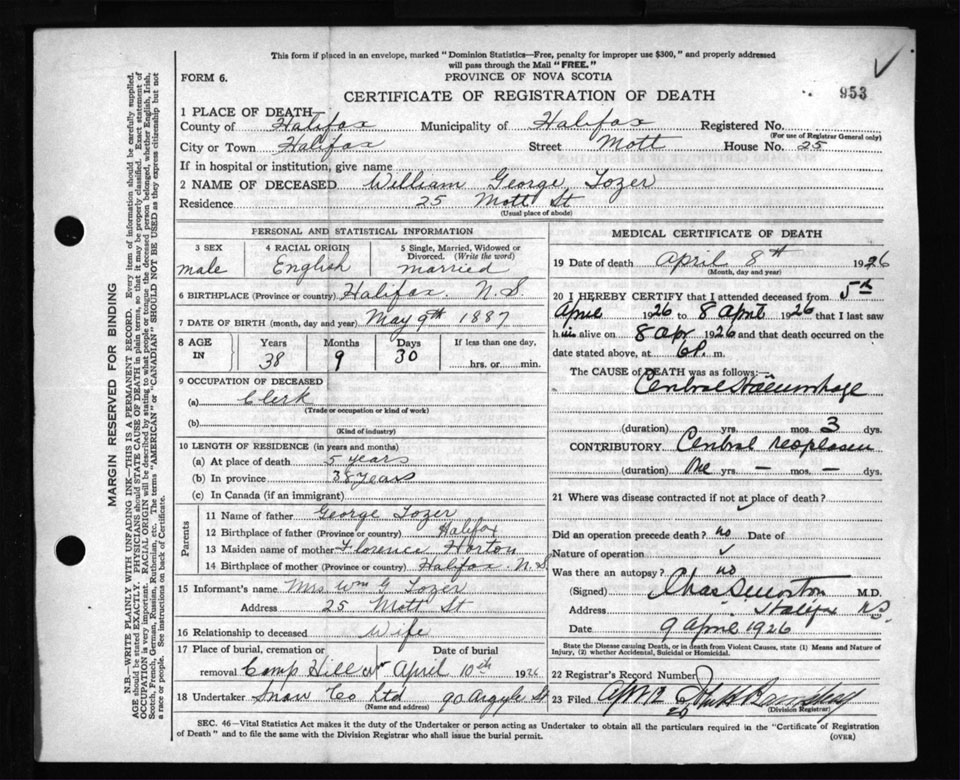 This form if placed in an envelope, marked "Dominion Statistics—Free, penalty for improper use $300," and properly addressed
will pass through the Mail "FREE."
FORM 6.
PROVINCE OF NOVA SCOTIA
953
CERTIFICATE OF REGISTRATION OF DEATH
1 PLACE OF DEATH—
County of Halifax Municipality of Halifax Registered No.
(For use of Registrar General only)
City or Town Halifax Street Mott House No. 25
If in hospital or institution, give name
2 NAME OF DECEASED William George Tozer
Residence 25 Mott St
(Usual place of abode)
PERSONAL AND STATISTICAL INFORMATION
3 SEX 4 RACIAL ORIGIN 5 Single, Married, Widowed or Divorced. (Write the word)
male English married
6 BIRTHPLACE (Province or country) Halifax. N.S
7 DATE OF BIRTH (month, day and year) May 9th 1887
8 AGE IN Years Months Days If less than one day,
38 9 30 hrs. or min.
9 OCCUPATION OF DECEASED
(a) Clerk
(Trade or occupation or kind of work)
(b)
(Kind of industry)
10 LENGTH OF RESIDENCE (in years and months)
(a) At place of death 5 years
(b) In province 38 years
(c) In Canada (if an immigrant)
Parents
11 Name of father George Tozer
12 Birthplace of father (Province or country) Halifax
13 Maiden name of mother Florence Horton
14 Birthplace of mother (Province or country) Halifax N.S
15 Informant's name Mrs Wm G Tozer
Address 25 Mott St
16 Relationship to deceased Wife
17 Place of burial, cremation or removal Date of burial
Camp Hill April 10th 1926
18 Undertaker Snow Co Ltd 90 Argyle St
(Name and address)
MEDICAL CERTIFICATE OF DEATH
19 Date of death April 8th 1926
(Month, day and year)
20 I HEREBY CERTIFY that I attended deceased from 5th
April 1926 to 8 April 1926 that I last saw
him alive on 8 apr 1926 and that death occurred on the
date stated above, at 6 P. m.
The CAUSE of DEATH was as follows:—
(duration) yrs. mos. 3 dys.
CONTRIBUTORY
(duration) One yrs. — mos. — dys.
21 Where was disease contracted if not at place of death?
Did an operation precede death? no Date of
Nature of operation ✓
Was there an autopsy? no
(Signed) M.D.
Address Halifax NS.
Date 9 April 1926
State the Disease causing Death, or in death from Violent Causes, state (1) Means and Nature of
Injury, (2) whether Accidental, Suicidal or Homicidal.
22 Registrar's Record Number
23 Filed Apr 12 1926
(Division Registrar)
SEC. 46—Vital Statistics Act makes it the duty of the Undertaker or person acting as Undertaker to obtain all the particulars required in the "Certificate of Registration
of Death" and to file the same with the Division Registrar who shall issue the burial permit.
(OVER)
MARGIN RESERVED FOR BINDING
N.B.—WRITE PLAINLY WITH UNFADING INK—THIS IS A PERMANENT RECORD. Every item of information should be carefully supplied.
AGE should be stated EXACTLY. PHYSICIANS should STATE CAUSE OF DEATH in plain terms, so that it may be properly classified. Exact statement of
OCCUPATION is very important. RACIAL ORIGIN will be described by stating to what people or tongue the deceased person belonged, whether English, Irish,
Scotch, French, German, Russian, Ruthenian, etc. The terms "AMERICAN" or "CANADIAN" SHOULD NOT BE USED as they express citizenship but not
a race or people. See instructions on back of Certificate.